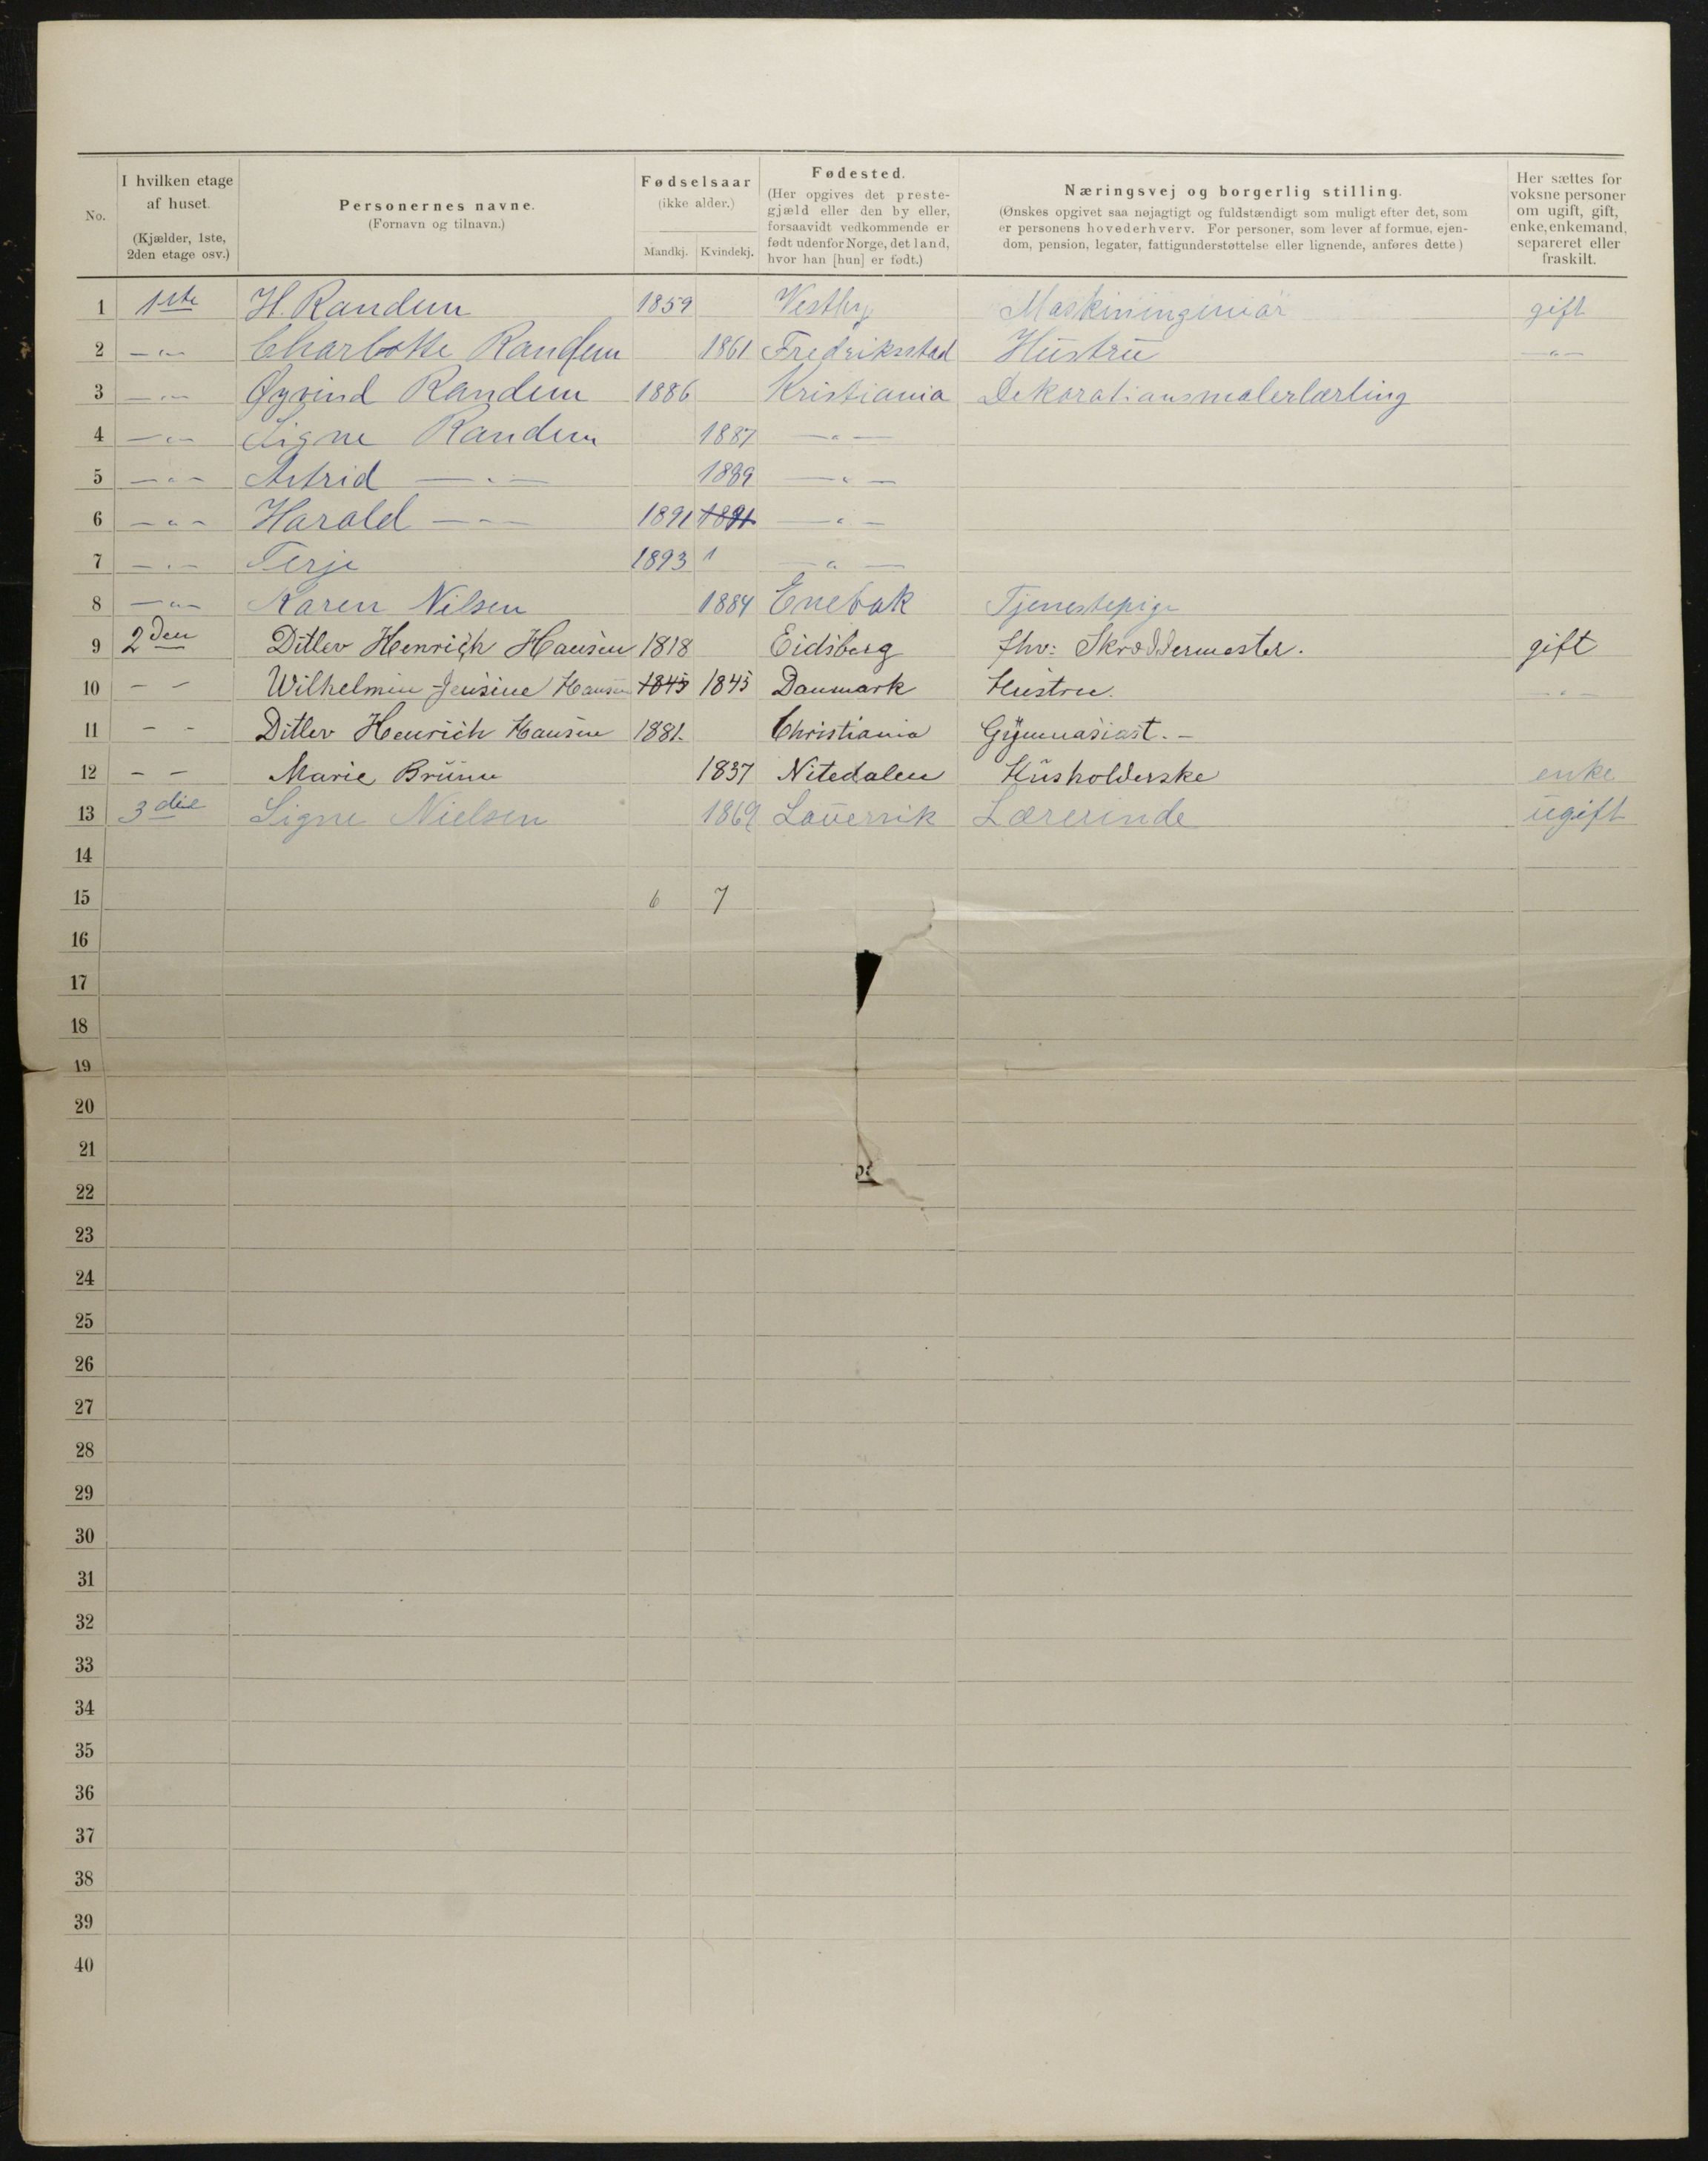 No. I hvilken etage af huset. (Kjælder, 1ste, 2den etage osv.) Personernes navne. (Fornavn og tilnavn.) Fødselsaar (ikke alder.) Mandkj. Kvindekj. Fødested. (Her opgives det prestegjæld eller den by eller, forsaavidt vedkommende er født udenfor Norge, det land, hvor han [hun] er født.) Næringsvej og borgerlig stilling. (Ønskes opgivet saa nøjagtigt og fuldstændigt som muligt efter det, som er personens hovederhverv. For personer, som lever af formue, ejendom, pension, legater, fattigunderstøttelse eller lignende, anføres dette) Her sættes for voksne personer om ugift, gift, enke, enkemand, separeret eller fraskilt.
1 1ste H. Randem 1859 Vestby Maskiningeniør gift
2 —"— Charlotte Randem 1861 Fredriksstad Hustru —"—
3 —"— Øyvind Randem 1886 Kristiania Dekorationsmalerlærling
4 —"— Signe Randem 1887 —"—
5 —"— Astrid —"— 1889 —"—
6 —"— Harald —"— 1891 1891 —"—
7 —"— Terje 1893 1 —"—
8 —"— Karen Nilsen 1884 Enebak Tjenestepige
9 2den Ditlev Henrich Hansen 1818 Eidsberg fhv: Skræddermester. gift
10 — — Wilhelmine Jensine Hansen 1845 1845 Danmark Hustru. —"—
11 — — Ditlev Henrich Hansen 1881. Christiania Gymnasiast. —
12 — — Marie Brünn 1837 Nitedalen Husholderske enke
13 3die Signe Nielsen 1869 Laurvik Lærerinde ugift
14
15 6 7
16
17
18
19
20
21
22
23
24
25
26
27
28
29
30
31
32
33
34
35
36
37
38
39
40